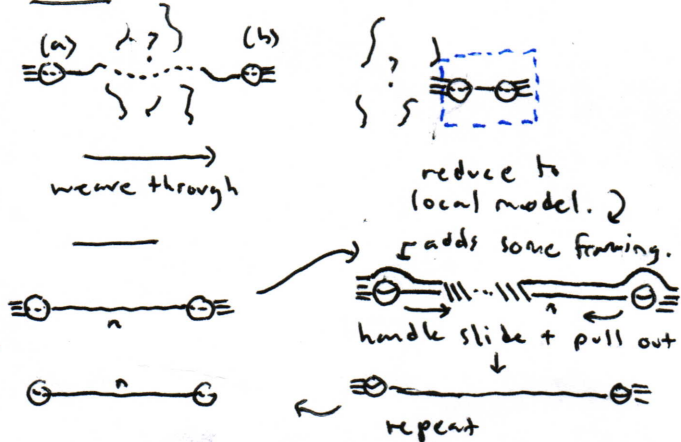 (a) ? (b)
?
weave through
reduce to
local model.
adds some framing.
n
n
handle slide + pull out
n
repeat